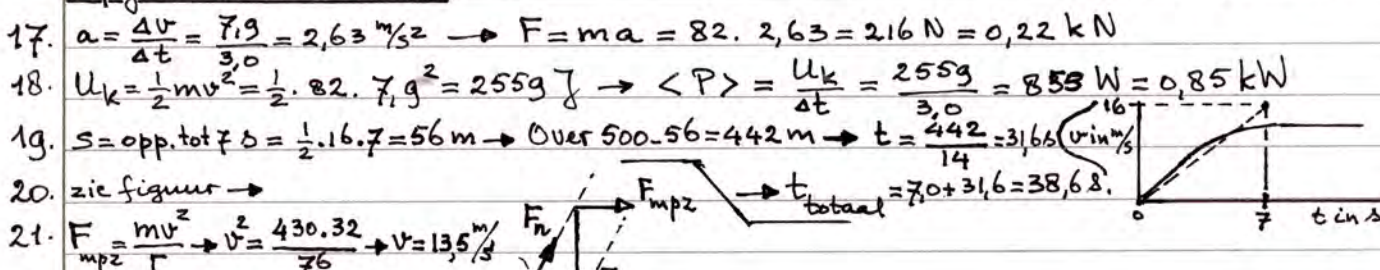 17. a = Δv/Δt = 7,9/3,0 = 2,63 m/s² → F = ma = 82. 2,63 = 216 N = 0,22 kN
18. Uk = ½mv² = ½. 82. 7,9² = 2559 J → <P> = Uk/Δt = 2559/3,0 = 853 W = 0,85 kW
19. s = opp. tot 7 s = ½.16.7 = 56 m → Over 500-56 = 442 m → t = 442/14 = 31,6 s (v in m/s 16
20. zie figuur → Fn Fmpz → t totaal = 7,0 + 31,6 = 38,6 s. 0 7 t in s
21. Fmpz = mv²/r → v² = 430.32/76 → v = 13,5 m/s